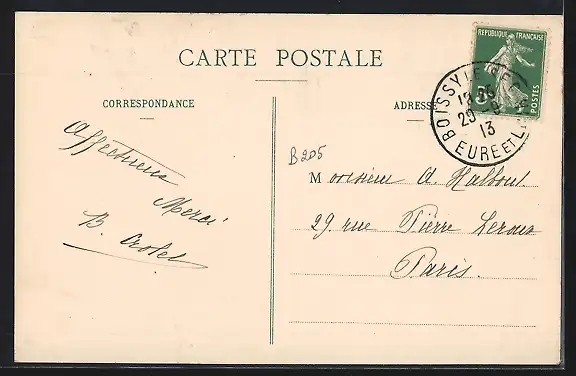 CARTE POSTALE
CORRESPONDANCE
ADRESSE
REPUBLIQUE FRANÇAISE
POSTES
BOISSY LE SEC
EURE ET L
13
B205
Affectueux
Merci
B.
Monsieur A. Halbout.
29. rue Pierre Leroux
Paris.